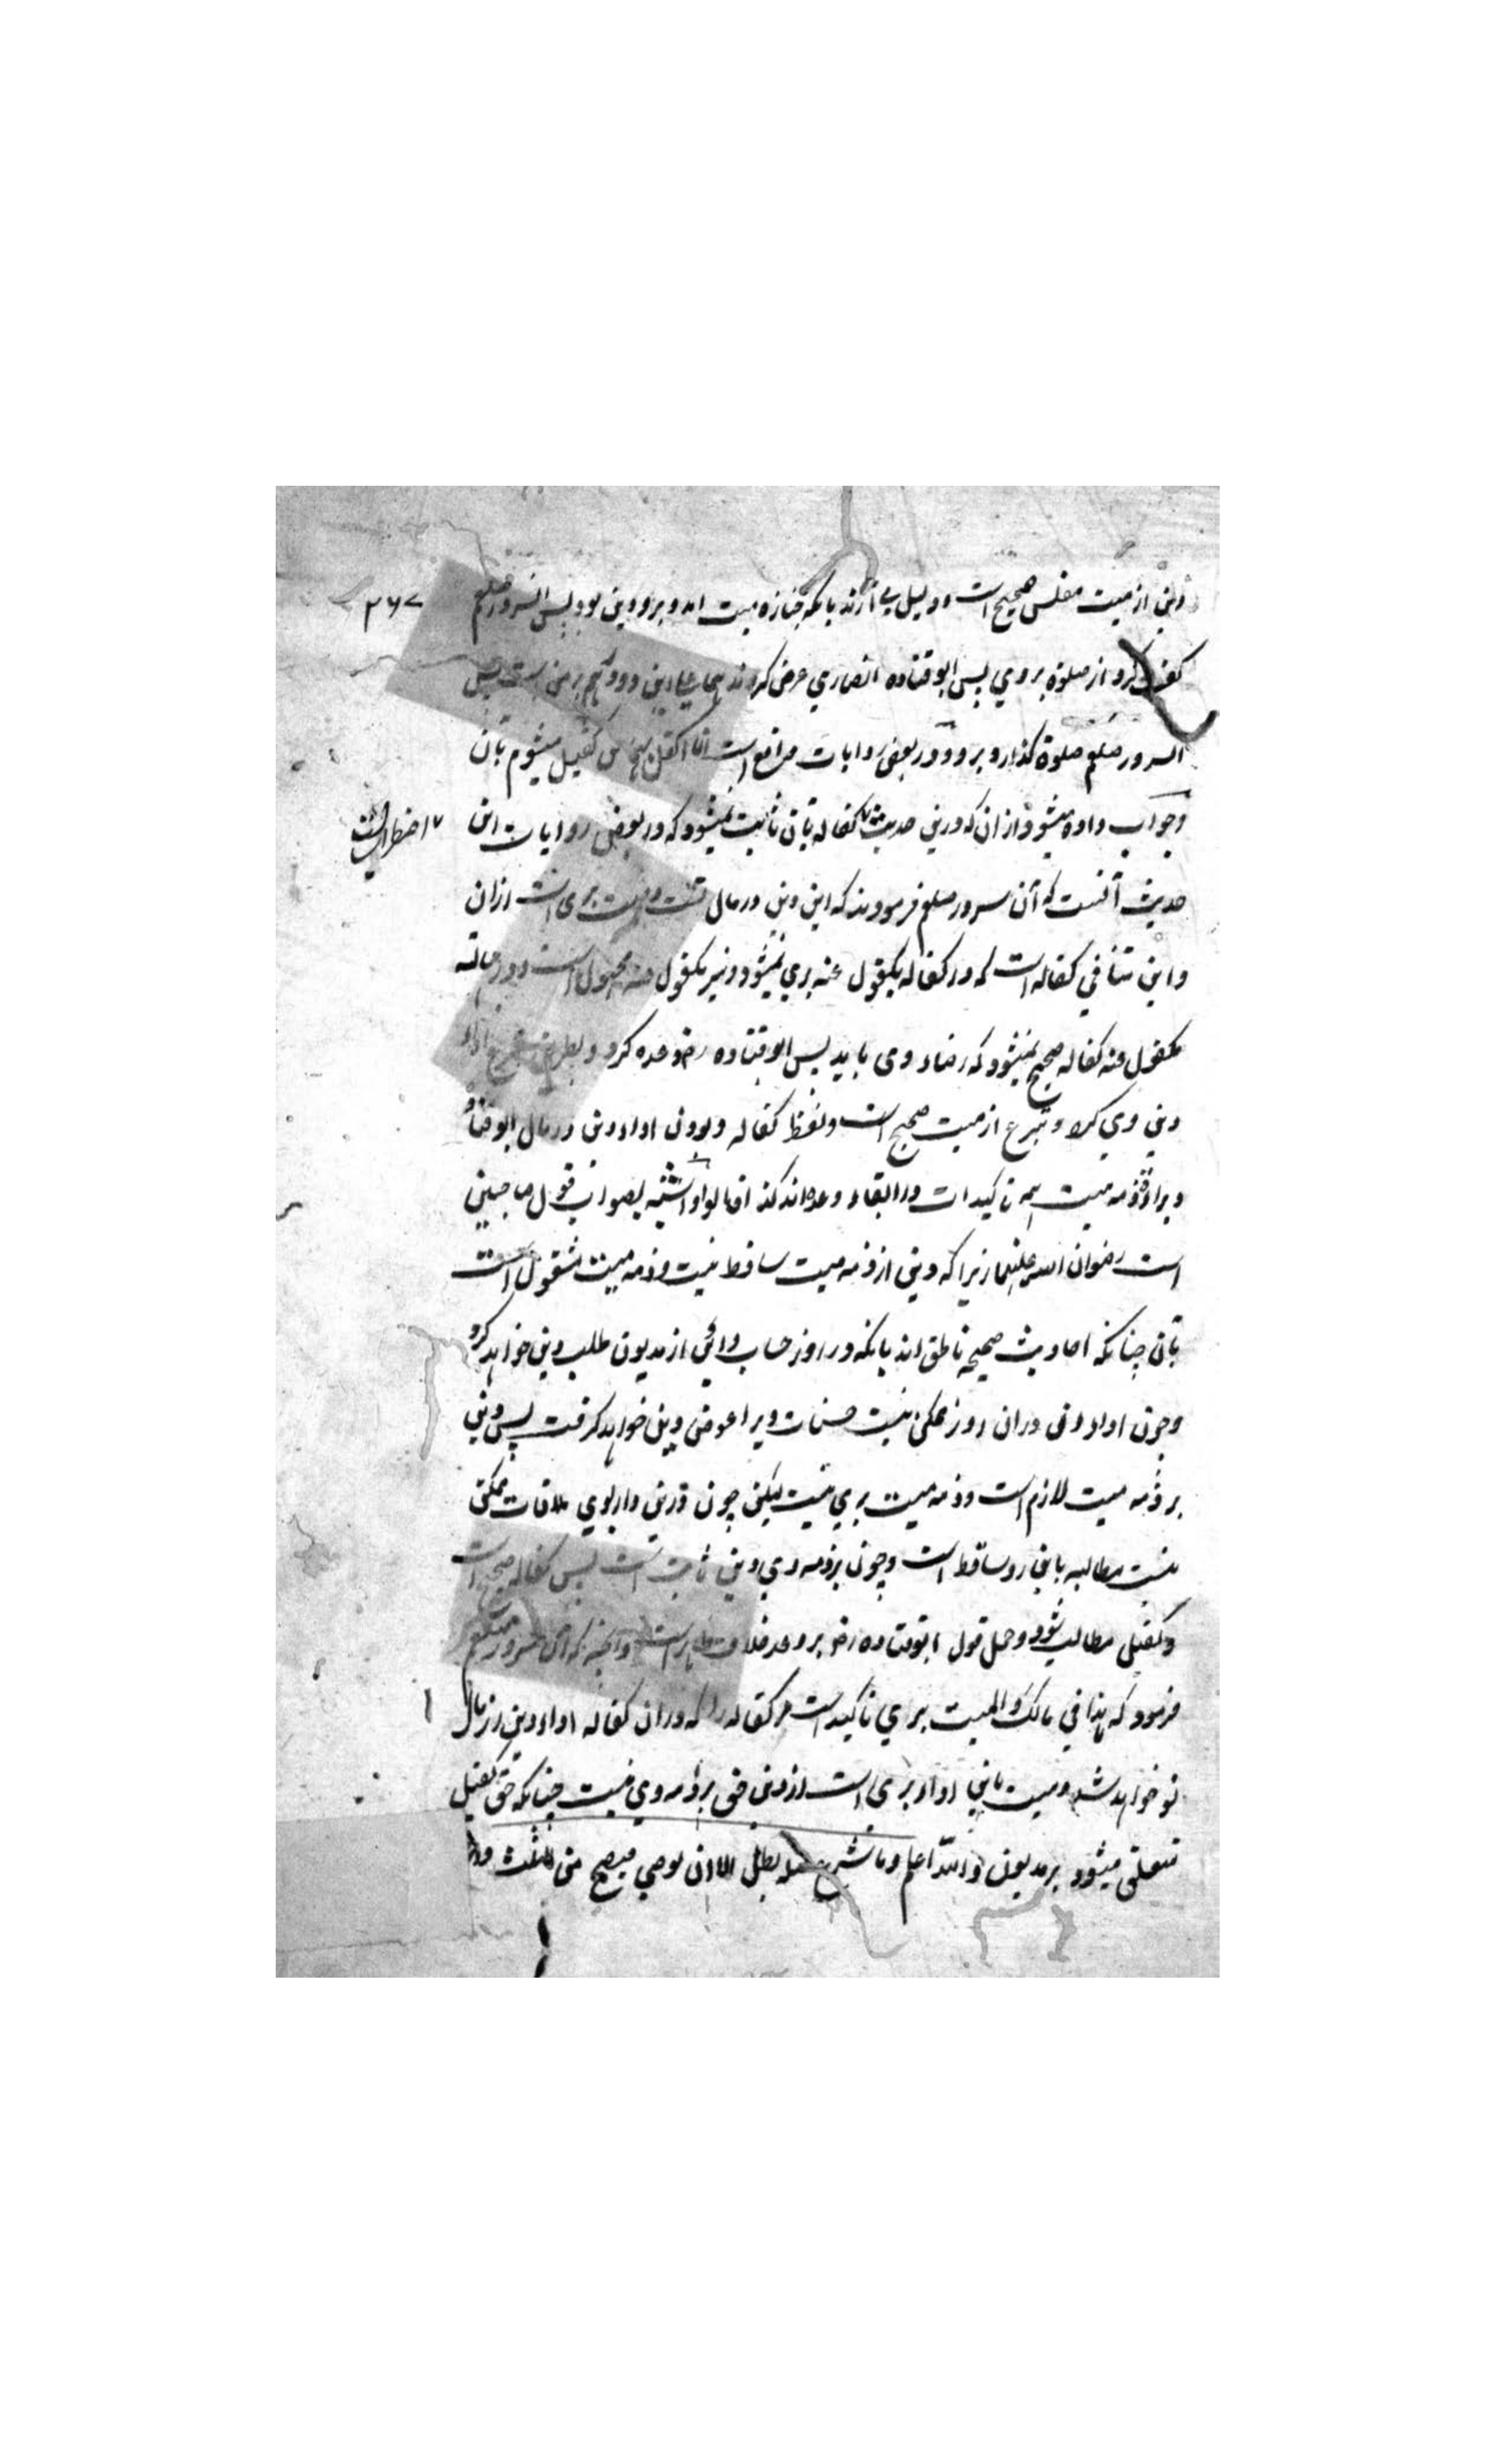 دین از میت مفلس صحیح است و دلیل می آرند بانکه جنازه میت امد و برو دین بود پس السرور صلعم
۲۶۷
کف کرد از صلوة بروی پس ابو قتاده انصاری عرض کردند هما علی این دو درهم بر من است پس
السرور صلعم صلوة گذارد برو و در بعضی روایات واقع است انا اکفل کفیل میشوم بان
وجواب داده میشود ازان که درین حدیث کفاله بان ثابت نمیشود که در بعضی روایات این
اضطراب است
حدیث آنست که آن سرور صلعم فرمودند که این دین در مالی تست و میت بری است ازان
و این منافی کفاله است که در کفاله مکفول عنه بری نمیشود و نیز مکفول منه مجهول است و در حالته
مکفول منه کفاله صحیح نمیشود که رضاء وی باید پس ابو قتاده رض وعده کرد و بطریق تبرع اداء
دین وی کرد و تبرع از میت صحیح است ولفظ کفاله و بودن اداء دین در مال ابو قتاده
و براءة ذمه میت همه تاکیدات در ایفاء وعده اند کذا قالوا و اشبه بصواب قول صاحبین
است رضوان الله علیهما زیرا که دین از ذمه میت ساقط نیست و ذمه میت مشغول است
بان چنانکه احادیث صحیحه ناطق اند بانکه در روز حساب داین از مدیون طلب دین خواهد کرد
وچون اداء دین دران روز ممکن نیست حسنات ویرا عوض دین خواهد گرفت پس دین
بر ذمه میت لازم است و ذمه میت بری نیست لیکن چون درین دار بوی ملاقات ممکن
نیست مطالبه باین رو ساقط است وچون بر ذمه وی دین ثابت است پس کفاله صحیح است
و کفیل مطالب شود و حمل قول ابو قتاده رض بر وعد خلاف ظاهر است وآنچه که آن سرور صلعم
فرمود که هذا فی مالک والمیت بری تاکید است مر کفاله را که دران کفاله اداء دین از مال
تو خواهد شد و میت باین اداء بری است از دین حق بر ذمه وی نیست چنانکه حق کفیل
متعلق میشود بر مدیون والله اعلم وما شرع بصلة بطل الا ان یوصی فیصح من الثلث